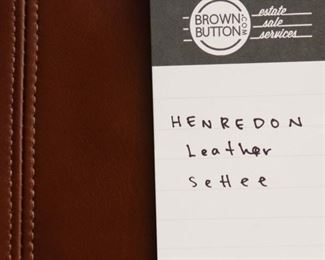 BROWN
BUTTON
.COM
estate
sale
services
HENREDON
Leather
Settee